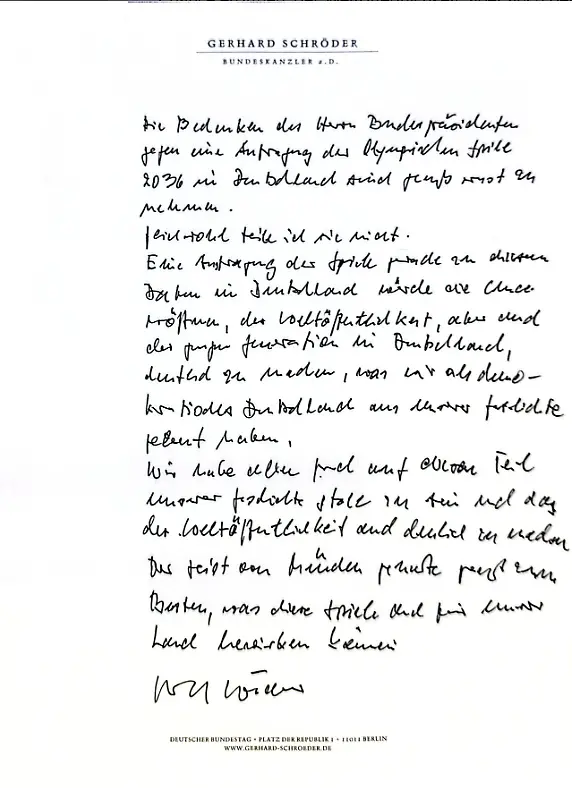 GERHARD SCHRÖDER
BUNDESKANZLER a.D.
Die Bedenken des Herrn Bundespräsidenten
gegen eine Austragung der Olympischen Spiele
2036 in Deutschland sind ernst zu
nehmen.
Gleichwohl teile ich sie nicht.
Eine Austragung der Spiele gerade zu diesem
Datum in Deutschland würde die Chance
eröffnen, der Weltöffentlichkeit, aber auch
der jungen Generation in Deutschland,
deutlich zu machen, was wir als demo-
kratisches Deutschland aus unserer Geschichte
gelernt haben.
Wir haben allen Grund auf diesen Teil
unserer Geschichte stolz zu sein und das
der Weltöffentlichkeit auch deutlich zu machen
Der Geist von München gehörte zum
Besten, was diese Spiele auch für unser
Land bewirken können
DEUTSCHER BUNDESTAG • PLATZ DER REPUBLIK 1 • 11011 BERLIN
WWW.GERHARD-SCHROEDER.DE